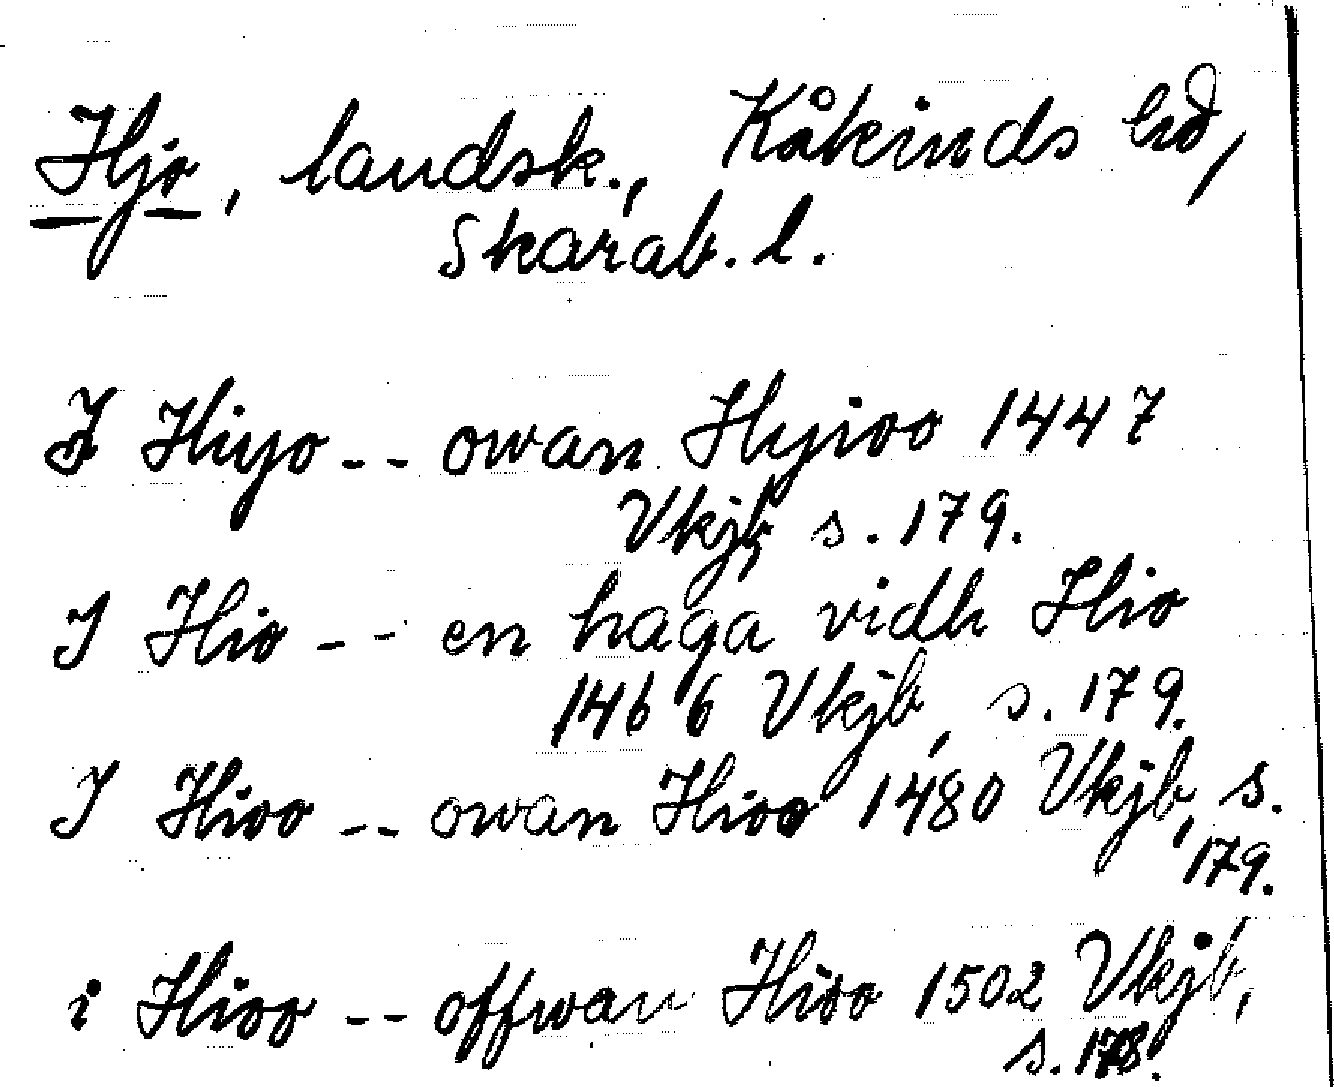 Hjo, landsk., Kåkinds hd,
Skarab. l.
I Hiyo -- owan Hyioo 1447
Vkjb, s. 179.
I Hio -- en haga vidh Hio
1466 Vkjb, s. 179.
I Hioo -- owan Hioo 1480 Vkjb, s.
179.
i Hioo -- offwan Hioo 1502 Vkjb,
s. 178.